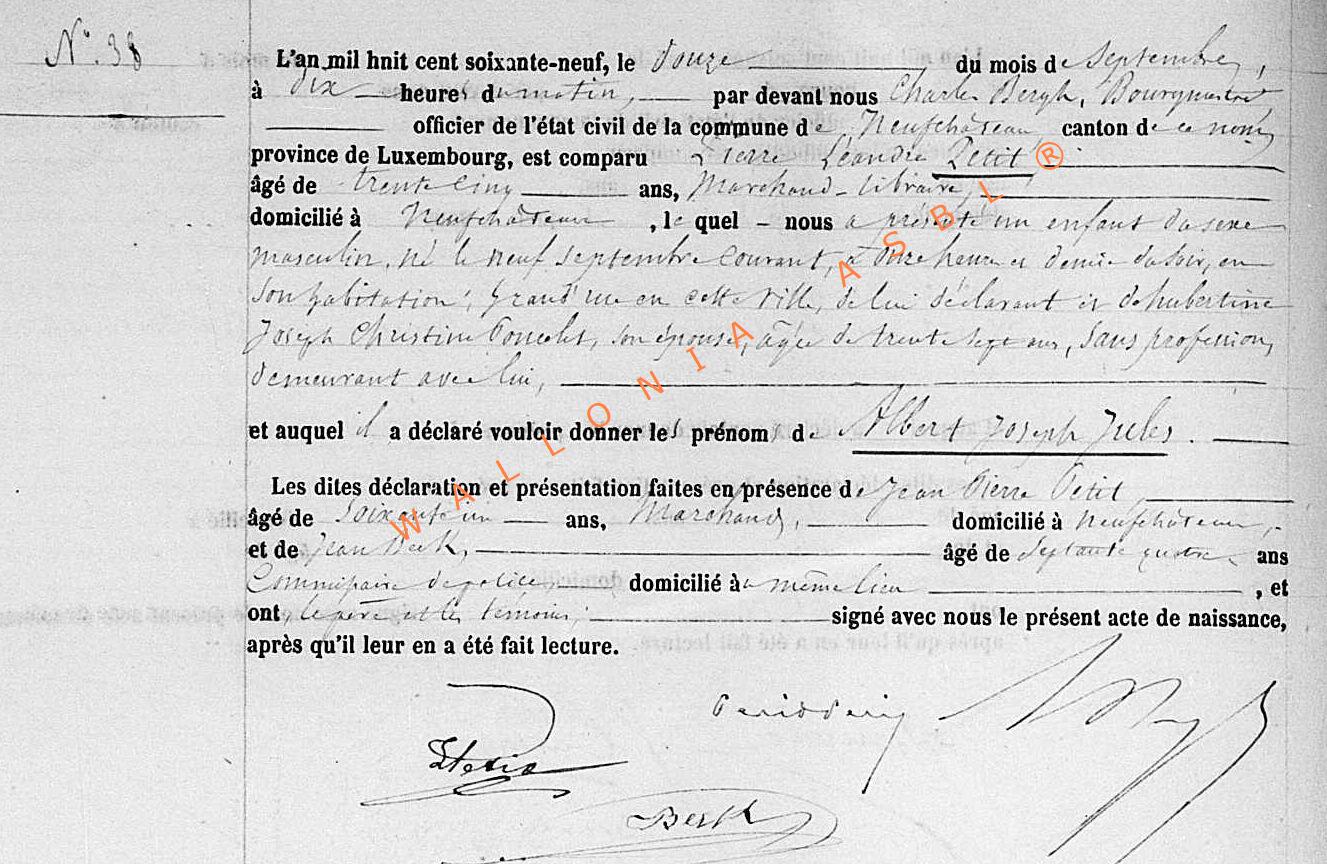 N° 38
L'an mil huit cent soixante-neuf, le douze du mois de Septembre,
à dix heures du matin, par devant nous Charles Bergh, Bourgmestre
officier de l'état civil de la commune de Neufchâteau canton de ce nom
province de Luxembourg, est comparu Pierre Léandre Petit
âgé de trente cinq ans, Marchand-libraire,
domicilié à Neufchâteau, lequel nous a présenté un enfant du sexe
masculin, né le neuf Septembre courant, à onze heures et demie du soir, en
son habitation, grand'rue en cette ville, de lui déclarant et de hubertine
Joseph Christine Poncelet, son épouse, âgée de trente sept ans, sans profession,
demeurant avec lui,
et auquel il a déclaré vouloir donner les prénoms de Albert Joseph Jules.
Les dites déclaration et présentation faites en présence de Jean Pierre Petit
âgé de soixante un ans, Marchand, domicilié à Neufchâteau,
et de Jean Berk, âgé de septante quatre ans
Commissaire de police, domicilié au même lieu, et
ont le père et les témoins, signé avec nous le présent acte de naissance,
après qu'il leur en a été fait lecture.
Berk
WALLONIA ASBL ®